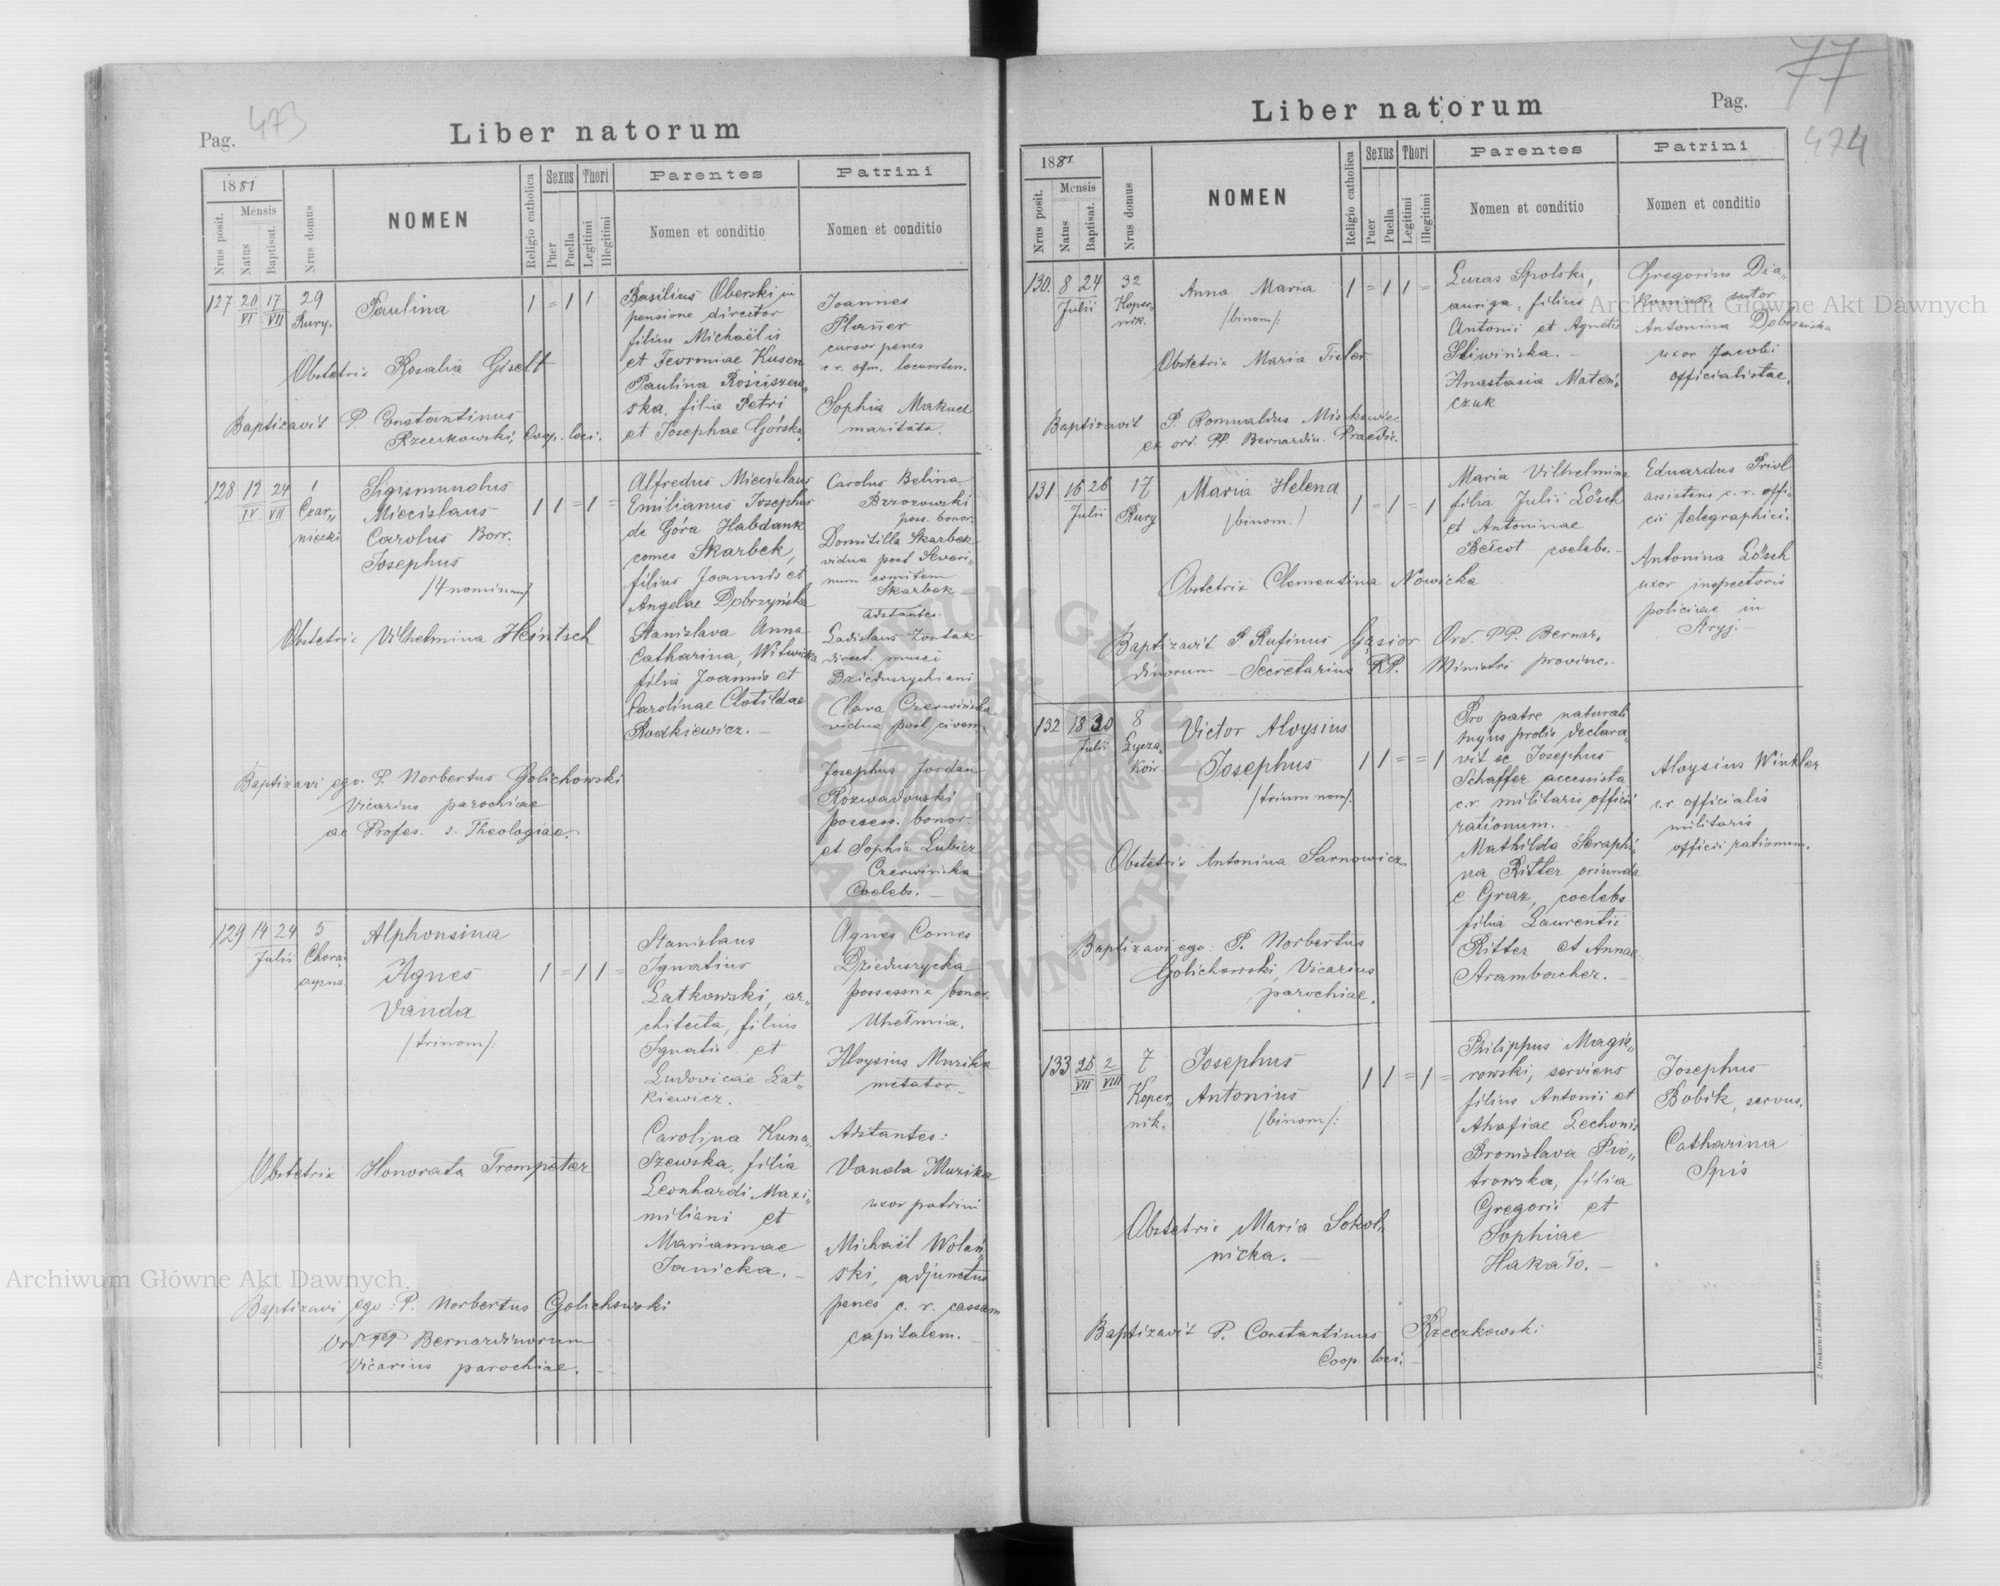 Pag. 473
Liber natorum
1881
Nrus posit.
Mensis
Natus
Baptisat.
Nrus domus
NOMEN
Religio catholica
Sexus
Puer
Puella
Thori
Legitimi
Illegitimi
Parentes
Nomen et conditio
Patrini
Nomen et conditio
127 20/VI 17/VII 29
Rury.
Paulina
1 = 1 1
Obstetrix Rosalia Giselt
Baptizavit P. Constantinus
Rzeczkowski, Coop. loci.
Basilius Oberski in
pensione director
filius Michaëlis
et Fevroniae Kusen
Paulina Rościszew„
ska, filia Petri
et Josephae Górska
Joannes
Planer
cursor penes
c. r. ofm. locumten.
Sophia Makuch
maritata.
128 12/IV 24/VII 1
Czar„
niecki
Sigismundus
Miecislaus
Carolus Borr.
Josephus
/4 nominum/
1 1 = 1 =
Obstetrix Vilhelmina Heintsch
Baptizavi ego: P. Norbertus Golichowski
Vicarius parochiae
ac Profes. s. Theologiae.
Alfredus Miecislaus
Emilianus Josephus
de Góra Habdank
comes Skarbek,
filius Joannis et
Angelae Dobrzyńska
Stanislava Anna
Catharina, Witwicka
filia Joannis et
Carolinae Clotildae
Rodkiewicz. —
Carolus Belina
Brzozowski
poss. bonor.
Domitilla Skarbek
vidua post Severi„
num comitem
Skarbek
Adstantes:
Ladislaus Zontak
direct. musei
Dzieduszyckiani
Clara Czerwińska
vidua post civem.
Josephus Jordan
Rozwadowski
possess. bonor.
et Sophia Lubicz
Czerwińska
Coelebs. —
129 14 24 5
Julii
Chorą
szyzna
Alphonsina
Agnes
Vanda
/trinom/:
1 = 1 1 =
Obstetrix Honorata Trompeter
Baptizavi ego: P. Norbertus Golichowski
Ord. PP Bernardinorum
Vicarius parochiae.
Stanislaus
Ignatius
Latkowski, ar„
chitecta, filius
Ignatii et
Ludovicae Lat„
kiewicz.
Carolina Kuna„
szewska, filia
Leonhardi Maxi„
miliani et
Mariannae
Janicka. —
Agnes Comes
Dzieduszycka
possessrix bonor.
Uhełmia.
Aloysius Muzika
metator
Adstantes:
Vanda Muzika
uxor patrini
Michaël Wolań„
ski, adjunctus
penes c. r. cassam
capitalem. —
77
Liber natorum
Pag. 474
1881
Nrus posit.
Mensis
Natus
Baptisat.
Nrus domus
NOMEN
Religio catholica
Sexus
Puer
Puella
Thori
Legitimi
Illegitimi
Parentes
Nomen et conditio
Patrini
Nomen et conditio
130. 8 24 32
Julii
Koper„
nik.
Anna Maria
/binom/:
1 = 1 1 =
Obstetrix Maria Tisler
Baptizavit P. Romualdus Miskowiec
ex ord. PP. Bernardin. Praedic.
Lucas Spolski,
auriga, filius
Antonii et Agnetis
Śliwińska. —
Anastasia Mateń„
czuk
Gregorius Dia„
koniuk, sutor
Antonina Dobrzańska
uxor Jacobi
officialistae.
131 16 26 17
Julii
Rury
Maria Helena
/binom./
1 = 1 = 1
Obstetrix Clementina Nowicka
Baptizavit P. Rufinus Gąsior Ord. PP. Bernar„
dinorum — Secretarius RP. Ministri provinc.
Maria Vilhelmina
filia Julii Lösch
et Antoninae
coelebs. —
Eduardus Privl
assistens c. r. offi„
cii telegraphici.
Antonina Lösch
uxor inspectoris
policiae in
Stryj. —
132 18 30 8
Julii
Łycza„
ków.
Victor Aloysius
Josephus
/trium nom/.
1 1 = = 1
Obstetrix Antonina Sarnowicz
Baptizavi ego: P. Norbertus
Golichowski, Vicarius
parochiae.
Pro patre naturali
hujus prolis declara„
vit se Josephus
Schaffer accessista
c. r. militaris officii
rationum. —
Mathilda Seraphi„
na Ritter oriunda
e Graz, coelebs
filia Laurentii
Ritter et Annae
Arambacher. —
Aloysius Winkler
c. r. officialis
militaris
officii rationum.
133 25/VII 2/VIII 7
Koper„
nik.
Josephus
Antonius
/binom/:
1 1 = 1 =
Obstetrix Maria Sokol„
nicka. —
Baptizavit P. Constantinus Rzeczkowski
Coop. loci. —
Philippus Magie„
rowski, serviens
filius Antonii et
Ahafiae Lechonis
Bronislava Pio„
trowska, filia
Gregorii et
Sophiae
Hakało. —
Josephus
Bobik, servus.
Catharina
Spis
Z Drukarni Ludowej we Lwowie.
Archiwum Główne Akt Dawnych
Archiwum Główne Akt Dawnych
ARCHIWUM GŁÓWNE AKT DAWNYCH